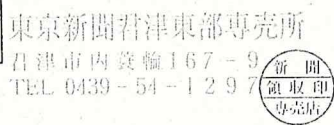 東京新聞君津東部専売所
君津市内蓑輪167-9
TEL 0439-54-1297
新聞
領収印
専売店